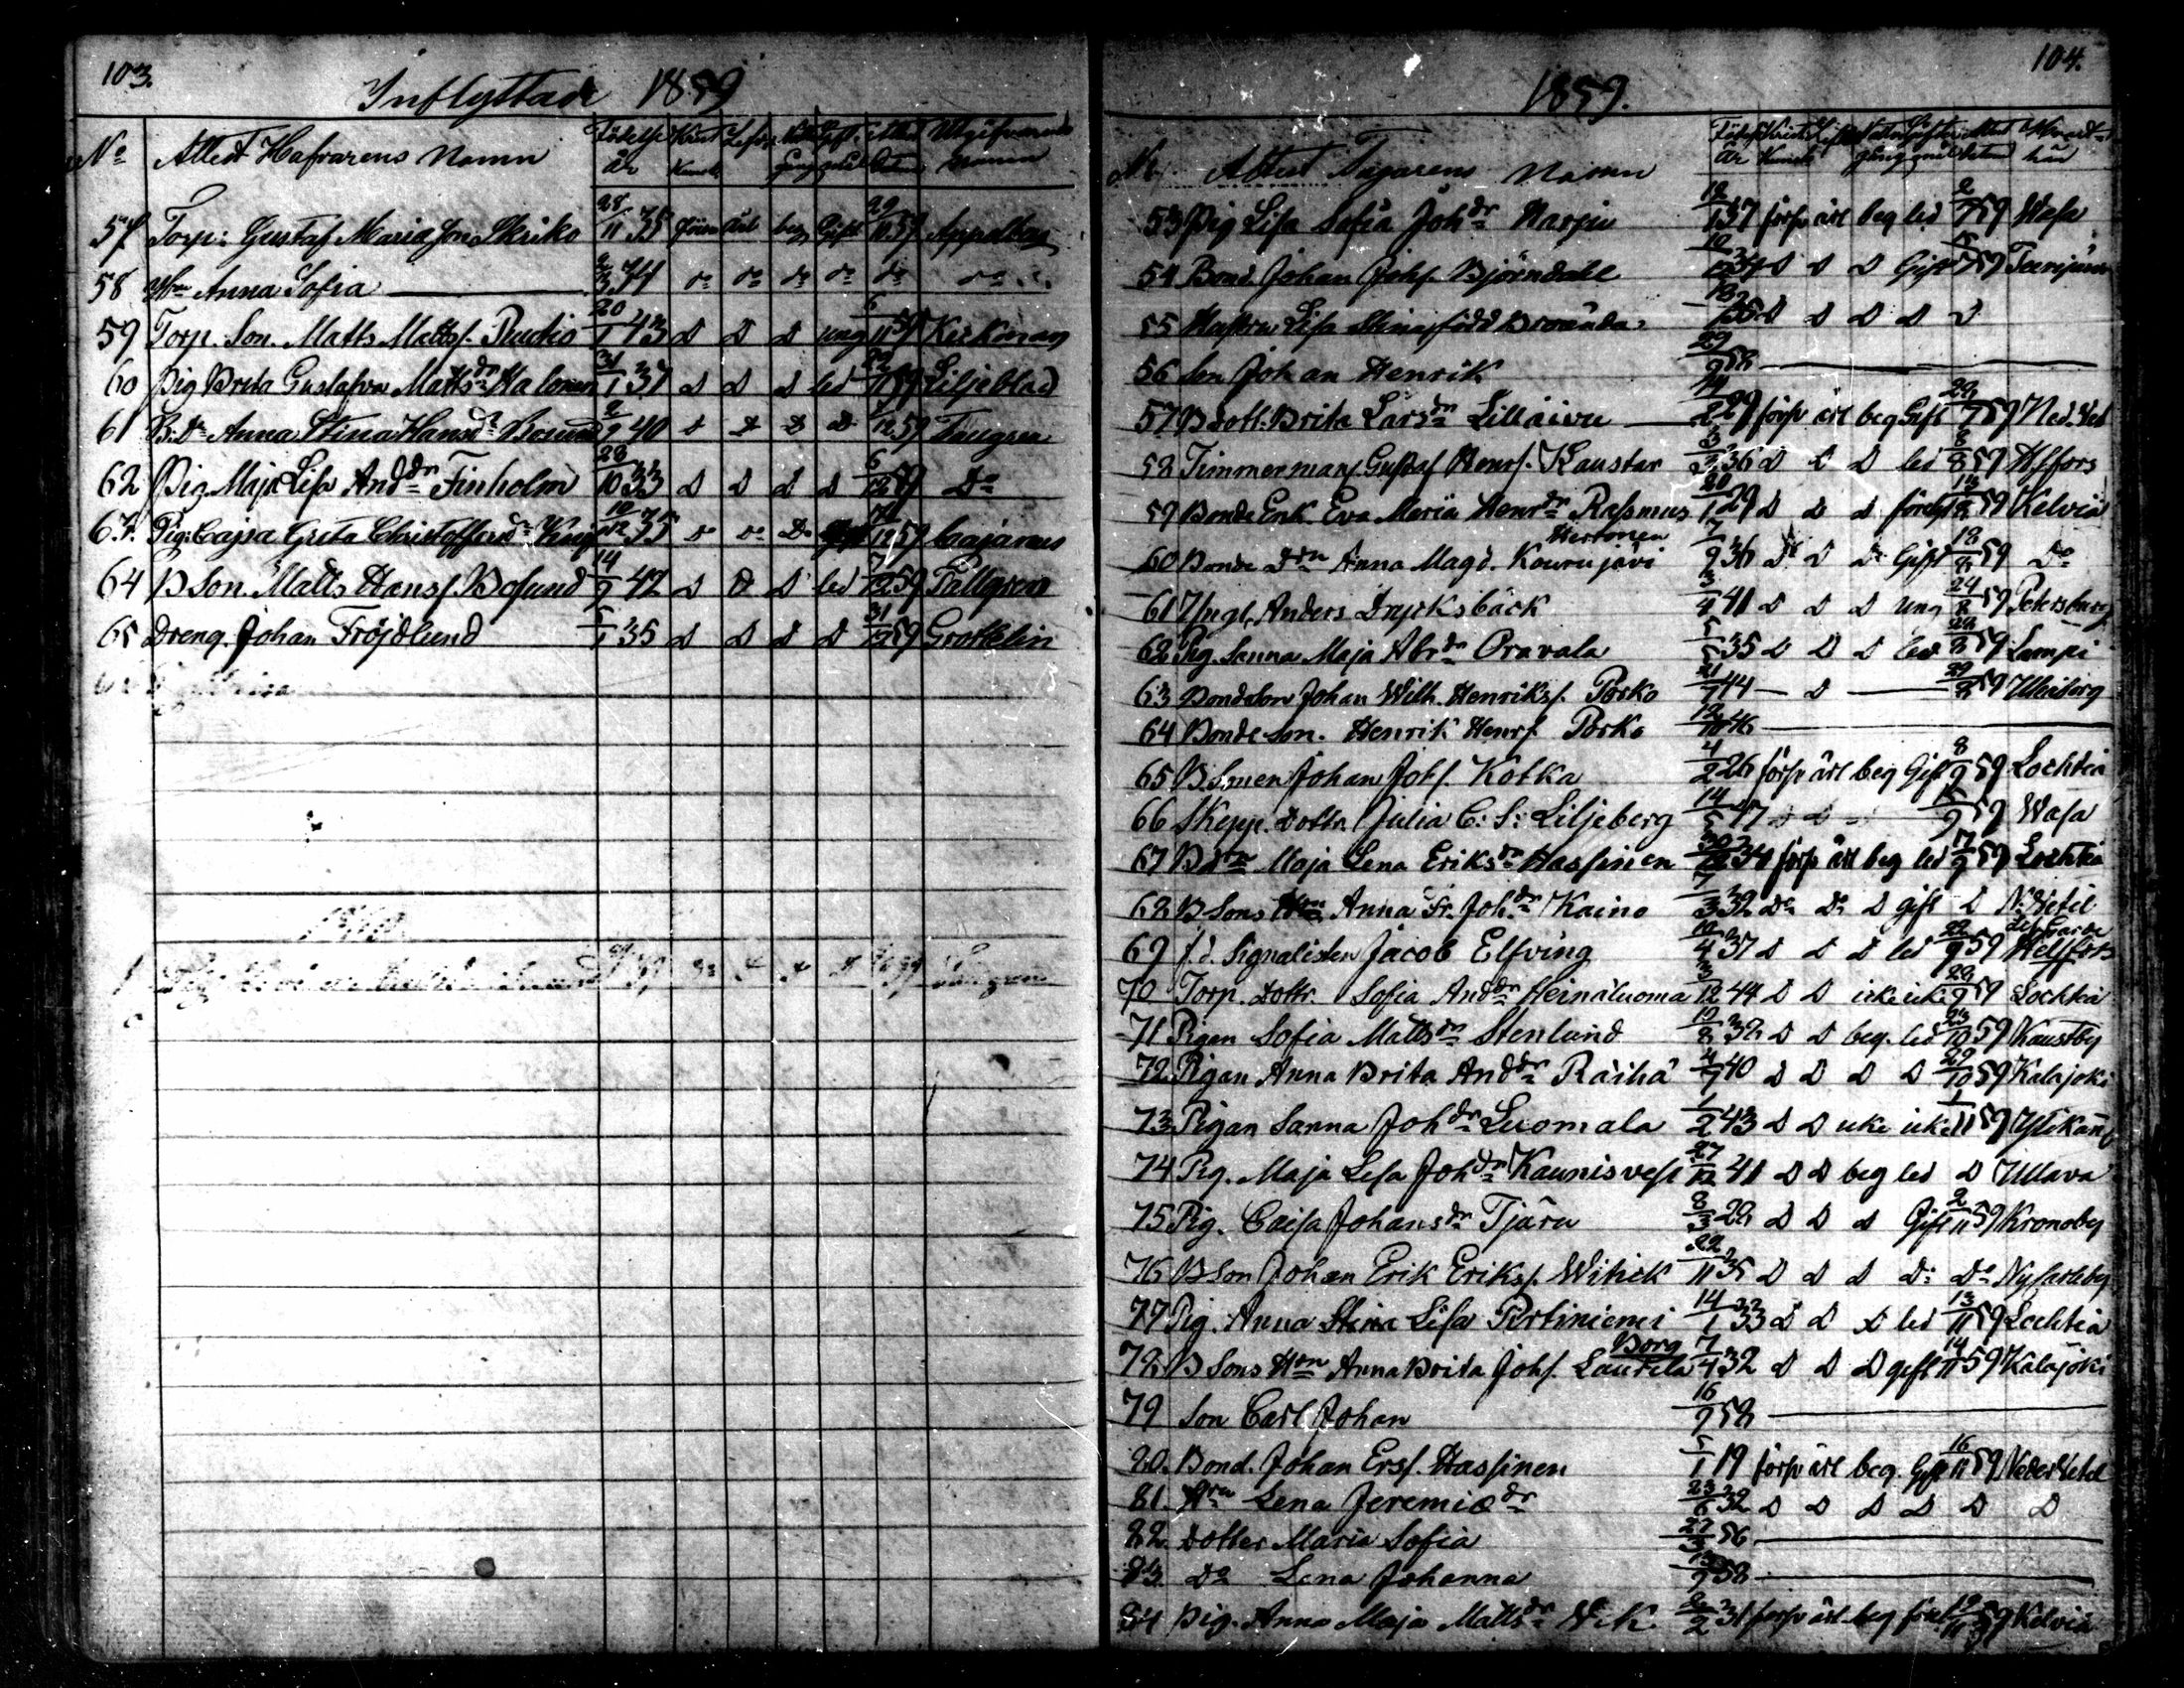 103.
Inflyttade 1859
No Attest Hafvarens Namn Födelse år Krist Kunsk Lefv. Natt gång Gift gmål Attest Datum Utgifvarens namn
57 Torp: Gustaf Mariason Skriko 28/11 35 försv ärl beg Gift 29/11 59 Appelberg
58 Hu Anna Sofia 2/3 44 do do do do do do
59 Torp. Son Matts Mattss. Rudio 20/1 43 D D D ung 6/11 59 Kerkman
60 Pig Brita Gustafva Mattsdr Halonen 31/1 37 D D D led 29/11 59 Liljeblad
61 B: Dr Anna Stina Hansdr 2/9 40 D D D D 12 59 Tengren
62 Pig Maja Lisa Anddr Finholm 28/10 33 D D D D 6/12 59 Do
63. Pig: Cajsa Greta Christoffersdr 10/12 35 D D D 12 59 Cajanus
64 B Son. Matts Hanss. Bosund 14/9 42 D D D led 7/12 59 Pallgren
65 Dreng. Johan Fröjdlund 5/1 35 D D D D 31/12 59 Grothelin
104.
1859.
No. Attest Tagarens Namn Födelse år Krist Kunsk Lefv Nattv gång Gifter gmål Attest datum Hvart hän
53 Pig Lisa Sofia Johdr Harju 12/1 37 försv ärl beg led 2/7 59 Wasa
54 Bond. Johan Johs. Björndahl 10/12 34 D D D Gift 5/7 59 Teerijärvi
55 Hustru Lisa Stina född Brända 18/1 35 D D D D D
56 Son Johan Henrik 29/9 58
57 B dott: Brita Larsdr Lilläivu 2 29 försv ärl beg Gift 29/7 59 Ned. Vet
58 Timmerman Gustaf Henrs. Kaustar 3/3 36 D D D led 8/8 59 H.fors
59 Bonde Enk. Eva Maria Henrdr Rasmus 20/1 29 D D D 14/8 59 Kelviå
60 Bonde Drn Anna Magd. Kourujävi Hertonen 7/9 36 D D D Gift 18/8 59 Do
61 Yngl. Anders Drycksbäck 3/4 41 D D D ung 24/8 59 Petersburg
62 Pig. Sanna Maja Abrdr Oravala 5/5 35 D D D led 28/8 59 Lampi
63 Bondeson Johan Wilh. Henrikss. Porko 21/7 44 — D — 29/8 59 Uleåborg
64 Bondeson. Henrik Henrs. Porko 12/10 46
65 B Sonen Johan Johs. Kotka 4/2 26 försv ärl beg Gift 8/9 59 Lochteå
66 Skepp. Dottr Julia C: S: Liljeberg 14/5 47 D D 9 59 Wasa
67 B drn Maja Lena Eriksdr Hassinen 30/12 34 försv ärl beg led 17/9 59 Lochteå
68 B Sons Hun Anna Fr. Johdr Kaino 7/3 32 Do Do D gift D N: Vetil
69 f.d. Signalisten Jacob Elfving 10/4 37 D D D led 22/9 59 Helfors
70 Torp. Dottr. Sofia Anddr Heinäluoma 3/12 44 D D icke icke 29/9 59 Lochteå
71 Pigan Sofia Mattsdr Stenlund 10/8 32 D D beg. led 23/10 59 Kaustby
72 Pigan Anna Brita Anddr Räihä 4/7 40 D D D D 29/10 59 Kalajoki
73 Pigan Sanna Johdr Luomala 1/2 43 D D icke icke 1/11 59 Ylikannus
74 Pig. Maja Lisa Johdr Kaunisvesi 27/12 41 D D beg led D Ullava
75 Pig. Caisa Johansdr Tjäru 8/3 28 D D D Gift 2/11 59 Kronoby
76 B Son Johan Erik Erikss. Witick 22/11 35 D D D Do Do Nykarleby
77 Pig. Anna Stina Lisa Pertiniemi 14/1 33 D D D led 13/11 59 Lochteå
78 B Sons Hun Anna Brita Johs. Laurila Borg 7/4 32 D D D gift 14/11 59 Kalajoki
79 Son Carl Johan 16/9 58
80. Bond. Johan Erss. Hassinen 5/1 19 försv ärl beg. Gift 16/11 59 Nedervetil
81. Hru Lena Jeremiædr 23/6 32 D D D D D D
82. Dotter Maria Sofia 27/3 56
83. Do Lena Johanna 9 58
84 Pig. Anna Maja Mattsdr Wik 8/2 31 försv ärl beg 11 59 Kelviå